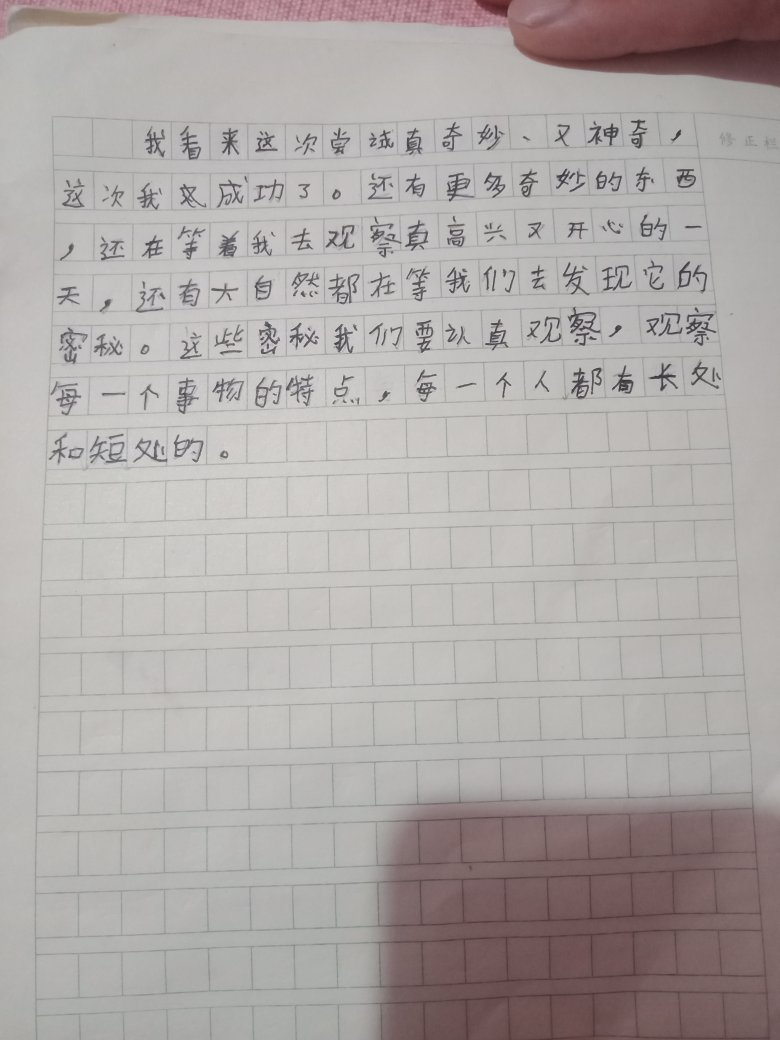 我看来这次尝试真奇妙、又神奇，
修正栏
这次我总成功了。还有更多奇妙的东西
，还在等着我去观察真高兴又开心的一
天，还有大自然都在等我们去发现它的
密秘。这些密秘我们要认真观察，观察
每一个事物的特点，每一个人都有长处
和短处的。